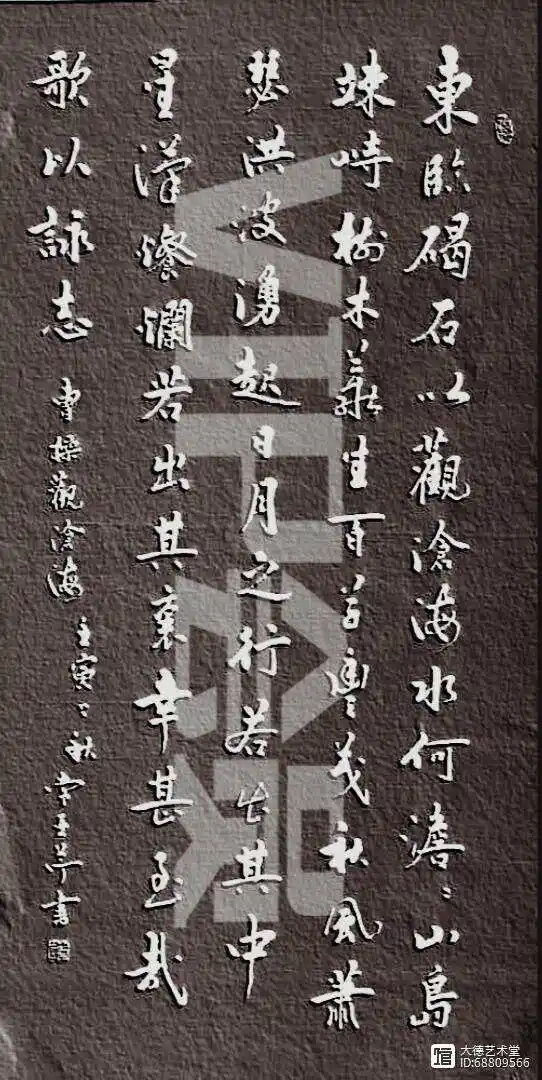 東臨碣石以觀滄海水何澹〻山島
竦峙樹木叢生百草豐茂秋風蕭
瑟洪波湧起日月之行若出其中
星漢燦爛若出其裏幸甚至哉
歌以詠志
曹操觀滄海 壬寅之秋 書
大德艺术堂
ID:68809566